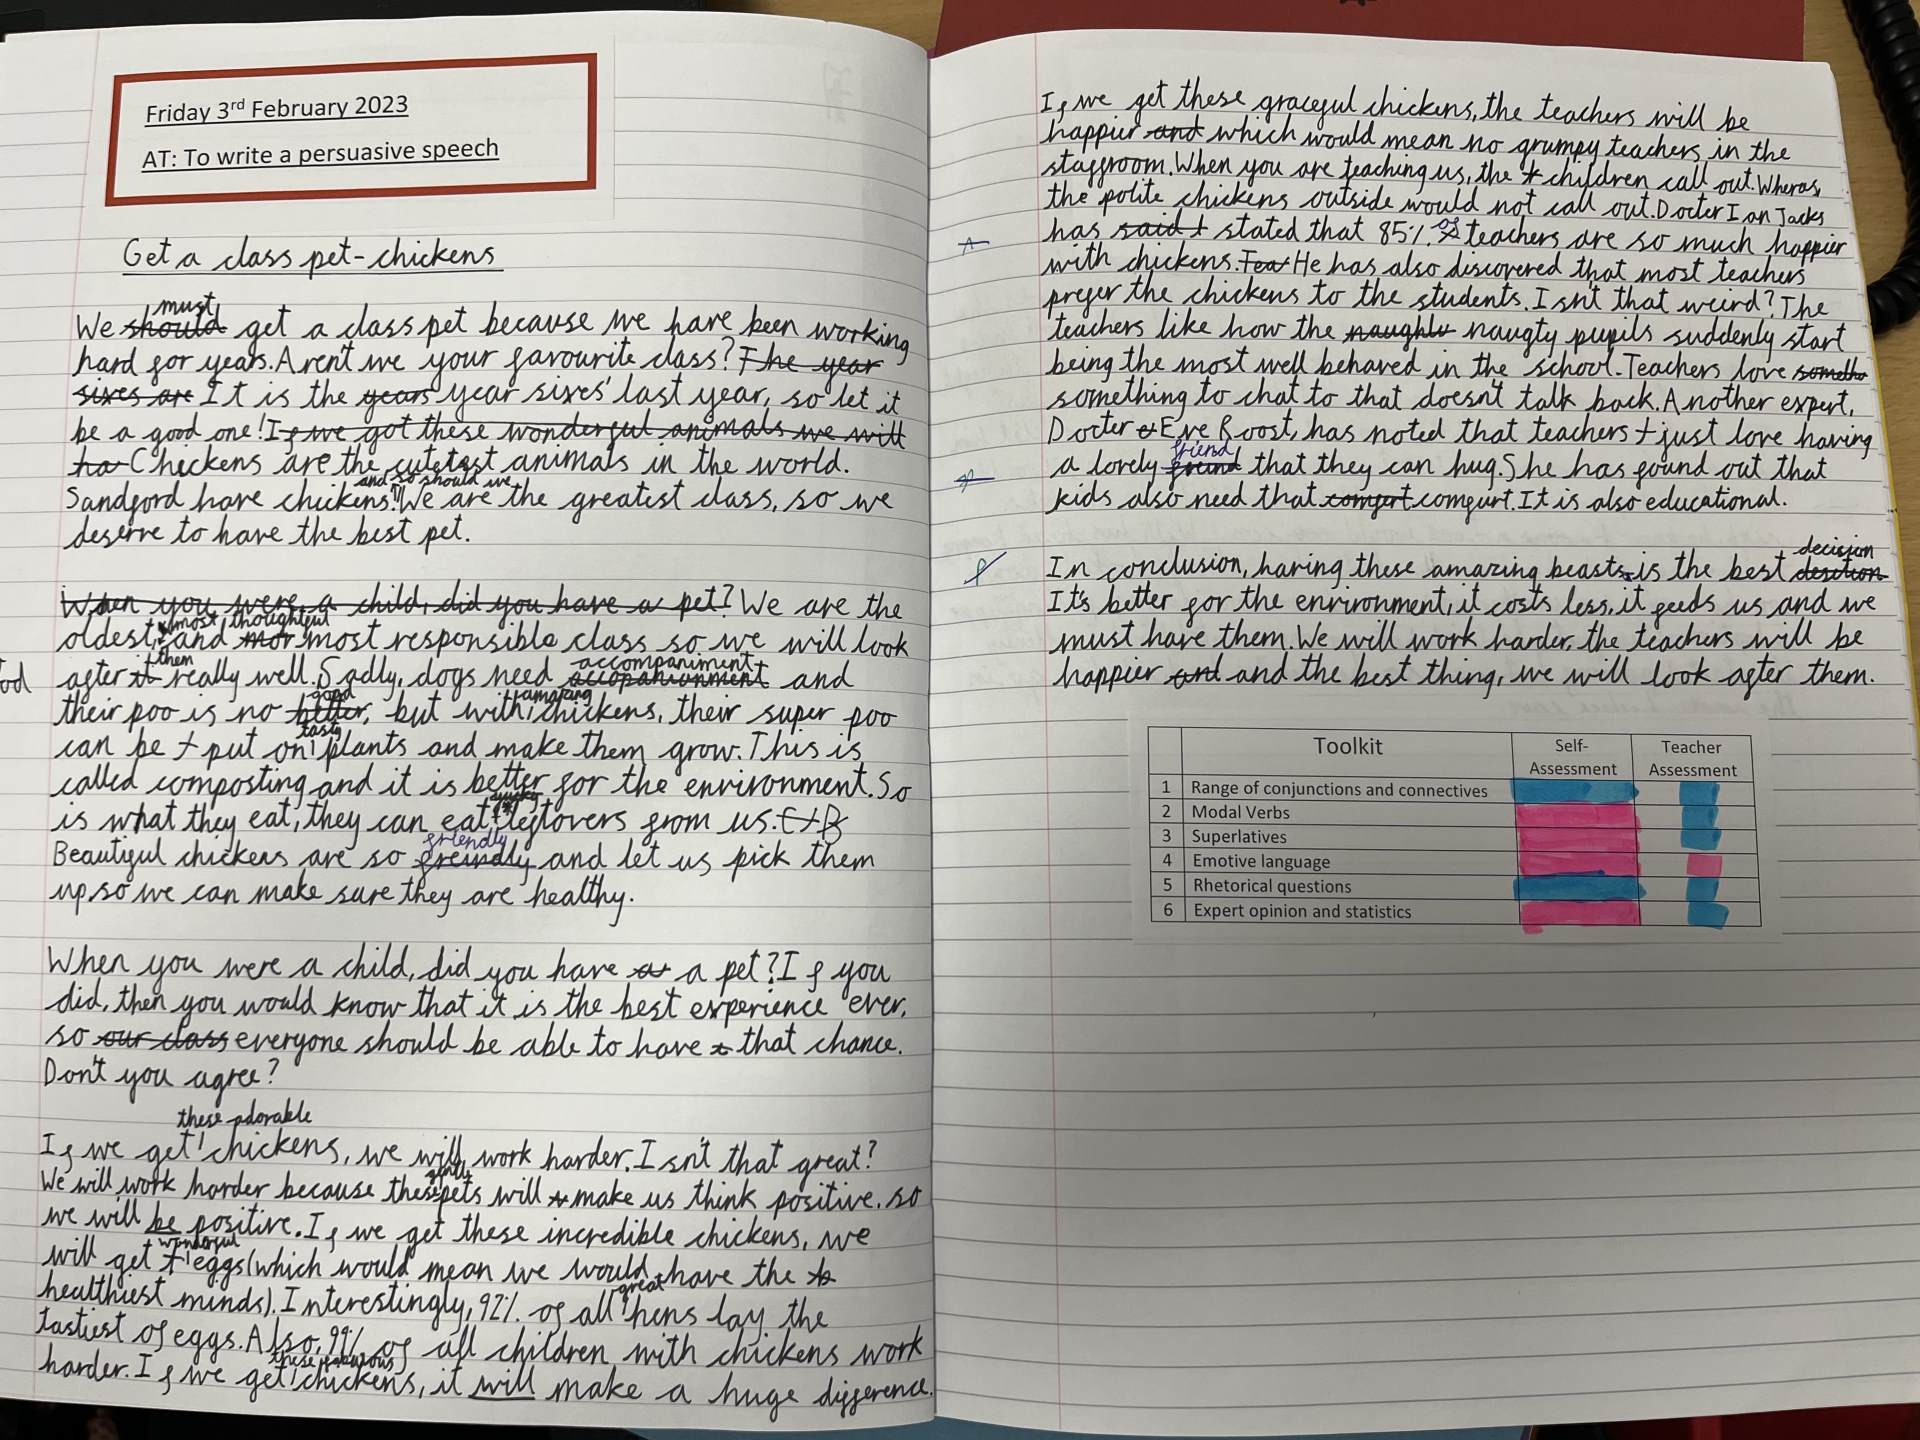 Friday 3rd February 2023
AT: To write a persuasive speech
Get a class pet-chickens
must
We should get a class pet because we have been working
hard for years. Aren't we your favourite class? The year
sixes are It is the years year sixes' last year, so let it
be a good one! If we got these wonderful animals we will
ha Chickens are the cutetest animals in the world.
and so should we
Sandford have chickens! We are the greatest class, so we
deserve to have the best pet.
When you were a child, did you have a pet? We are the
most thoughtful
oldest, and mor most responsible class so we will look
them accompaniment
od after it really well. Sadly, dogs need accopanionment and
good amazing
their poo is no better, but with chickens, their super poo
tasty
can be t put on plants and make them grow. This is
called composting and it is better for the environment. So
is what they eat, they can eat leftovers from us.
friendly
Beautiful chickens are so freindly and let us pick them
up, so we can make sure they are healthy.
When you were a child, did you have a a pet? If you
did, then you would know that it is the best experience ever,
so our class everyone should be able to have t that chance.
Don't you agree?
these adorable
If we get chickens, we will work harder. Isn't that great?
gentle
We will work harder because these pets will make us think positive, so
we will be positive. If we get these incredible chickens, we
wonderful
will get t eggs (which would mean we would have the
great
healthiest minds). Interestingly, 92% of all hens lay the
tastiest of eggs. Also, 99% of all children with chickens work
these fabulous
harder. If we get chickens, it will make a huge difference.
If we get these graceful chickens, the teachers will be
happier and which would mean no grumpy teachers in the
staffroom. When you are teaching us, the children call out. Wheras,
the polite chickens outside would not call out. Docter Ian Jacks
has said t stated that 85% of teachers are so much happier
with chickens. Tea He has also discovered that most teachers
prefer the chickens to the students. Isn't that weird? The
teachers like how the naughtu naugty pupils suddenly start
being the most well behaved in the school. Teachers love sometho
something to chat to that doesn't talk back. Another expert,
Docter e Eve Roost, has noted that teachers t just love having
friend
a lovely freind that they can hug. She has found out that
kids also need that comfert comfurt. It is also educational.
decision
In conclusion, having these amazing beasts is the best desition
It's better for the environment, it costs less, it feeds us and we
must have them. We will work harder, the teachers will be
happier and and the best thing, we will look after them.
Toolkit Self-Assessment Teacher Assessment
1 Range of conjunctions and connectives
2 Modal Verbs
3 Superlatives
4 Emotive language
5 Rhetorical questions
6 Expert opinion and statistics